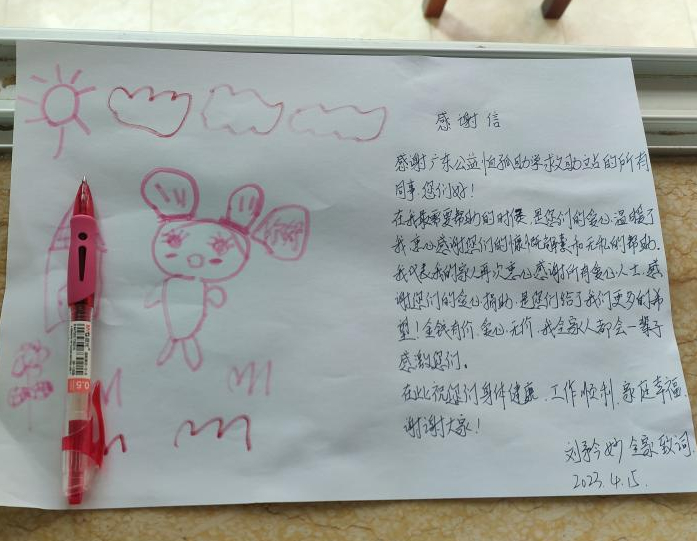 感谢信
感谢广东公益恤孤助学救助站的所有
同事,您们好!
在我最需要帮助的时候,是您们的爱心温暖了
我,衷心感谢您们的慷慨解囊和无私的帮助.
我代表我的家人再次衷心感谢所有爱心人士.感
谢您们的爱心捐助.是您们给了我们更多的希
望!金钱有价.爱心无价.我全家人都会一辈子
感激您们。
在此祝您们身体健康.工作顺利.家庭幸福
谢谢大家!
刘 妙 全家致词.
2023.4.15.
0.5